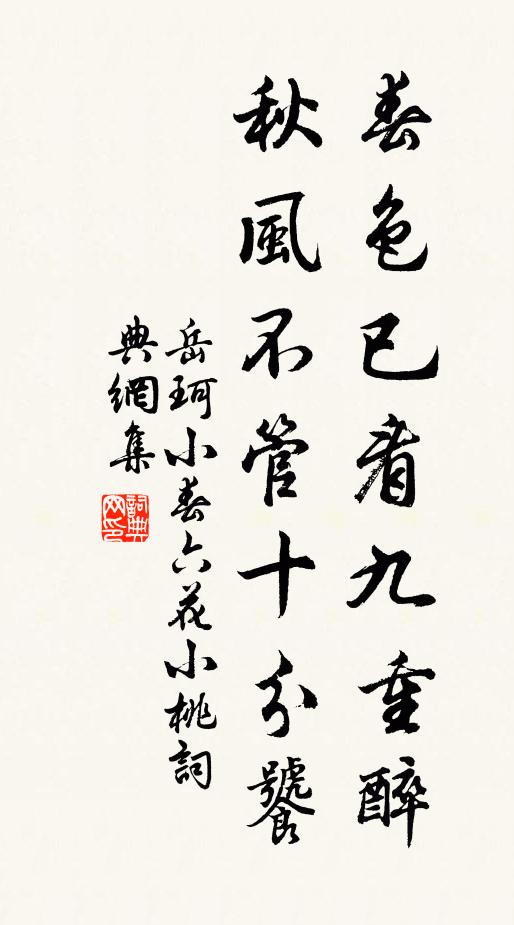 春色已看九重醉
秋風不管十分饕
岳珂小春六花小桃詞
典網集
詞典網印